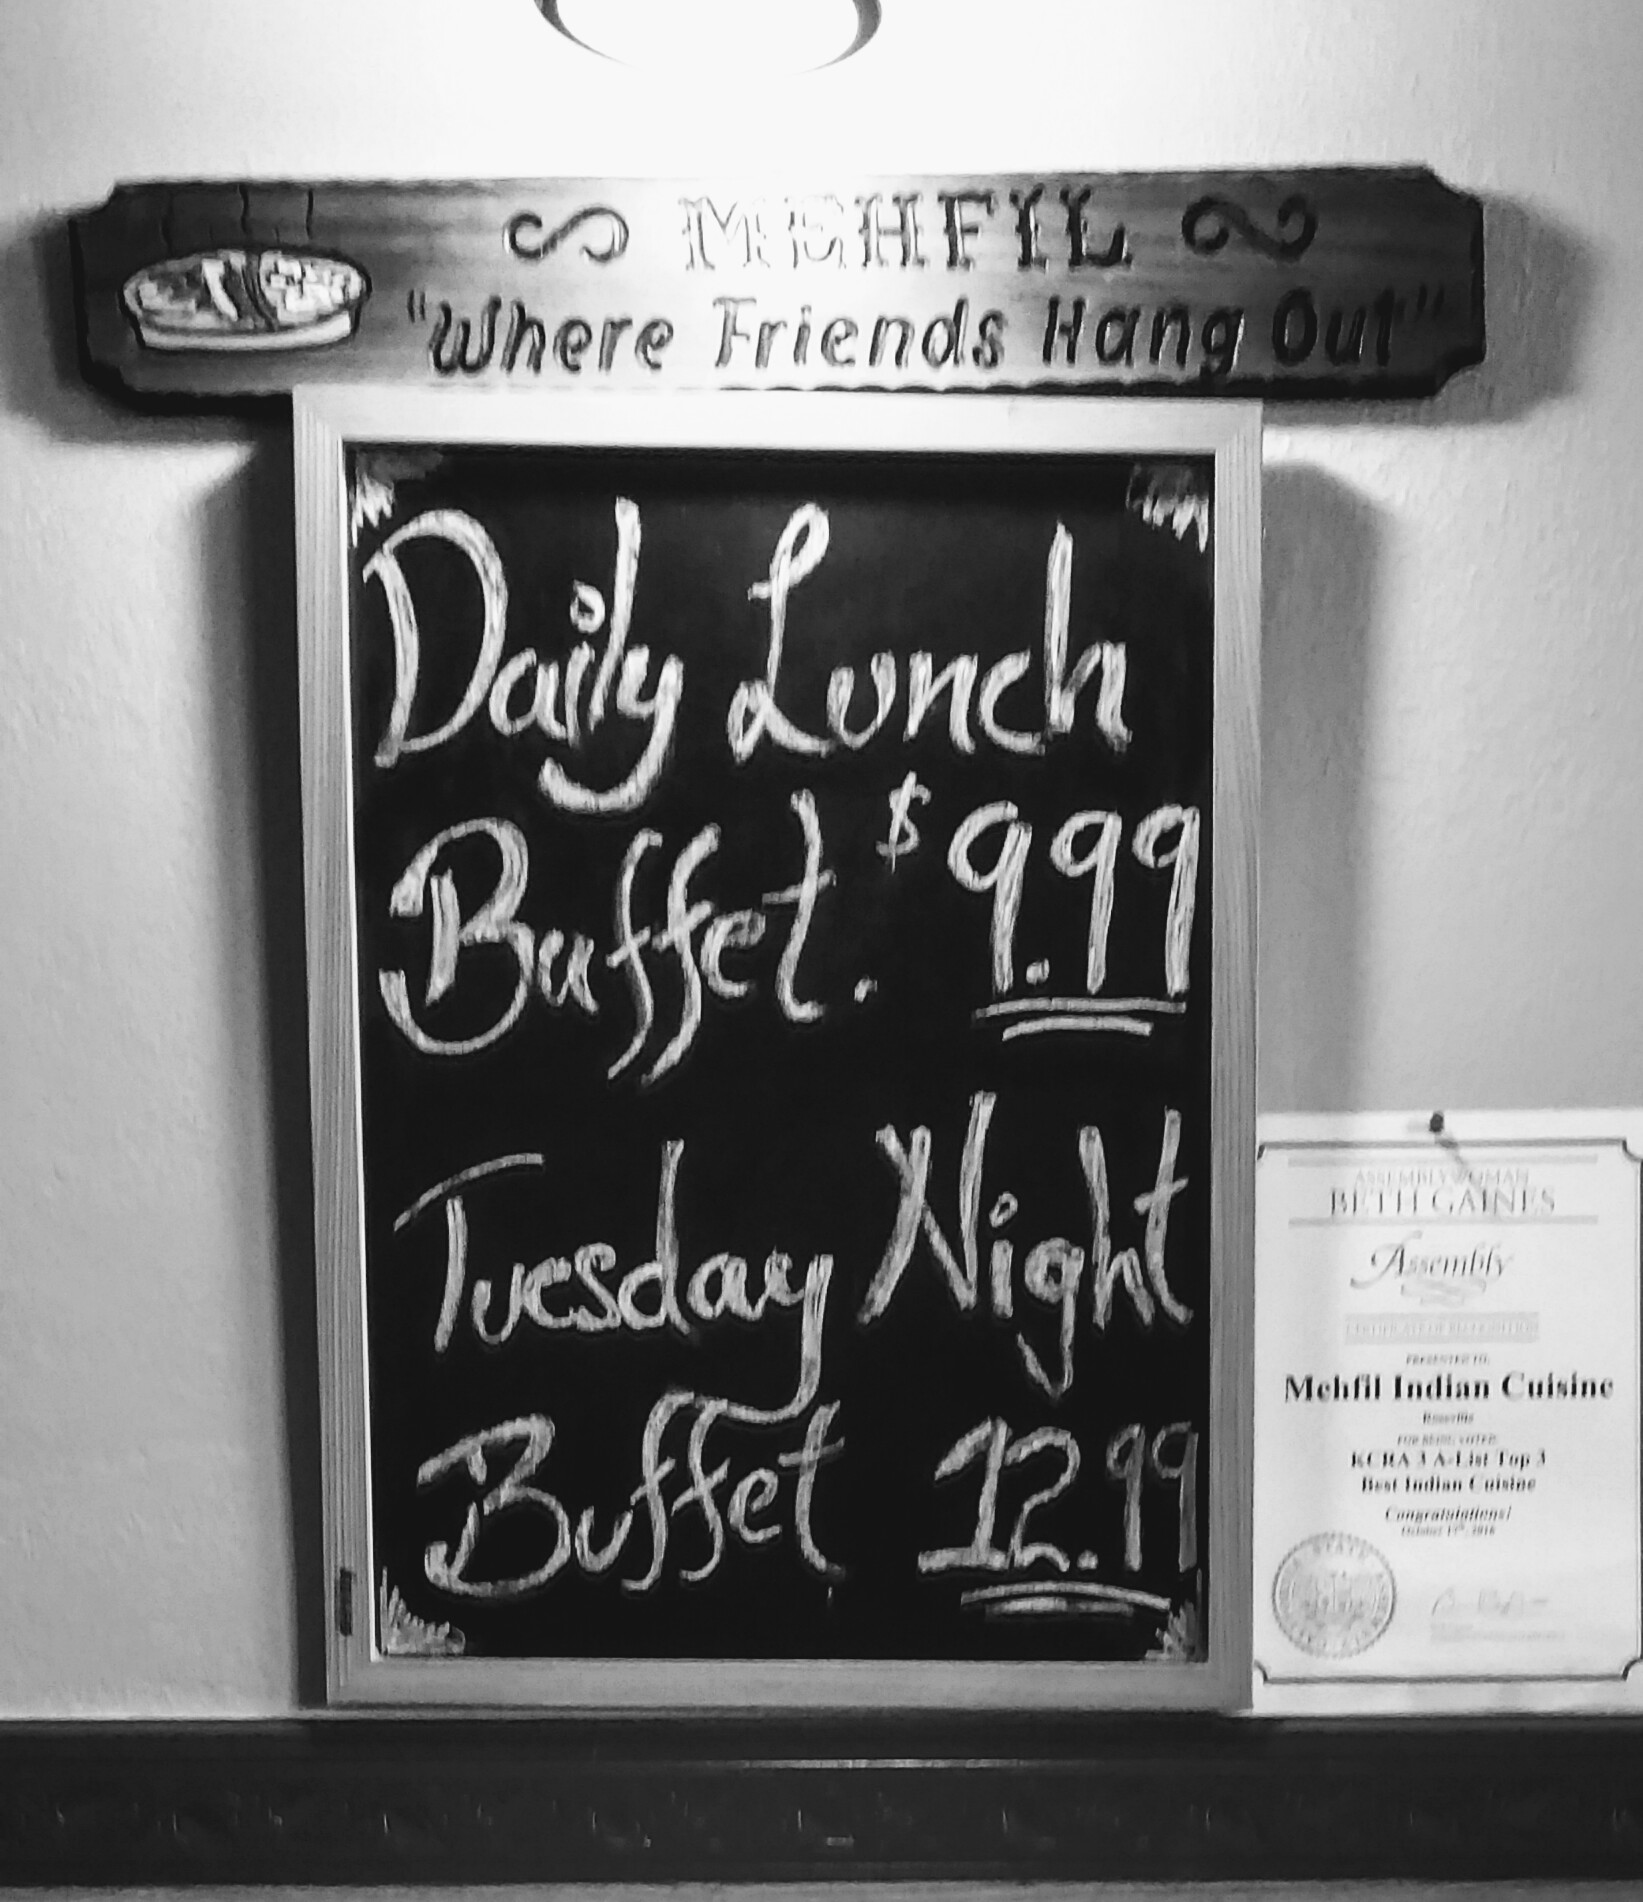 MEHFIL
"Where Friends Hang Out"
Daily Lunch
Buffet. $9.99
Tuesday Night
Buffet 12.99
ASSEMBLYWOMAN
BETH GAINES
Assembly
CERTIFICATE OF RECOGNITION
PRESENTED TO
Mehfil Indian Cuisine
Roseville
FOR BEING VOTED
KCRA 3 A-List Top 3
Best Indian Cuisine
Congratulations!